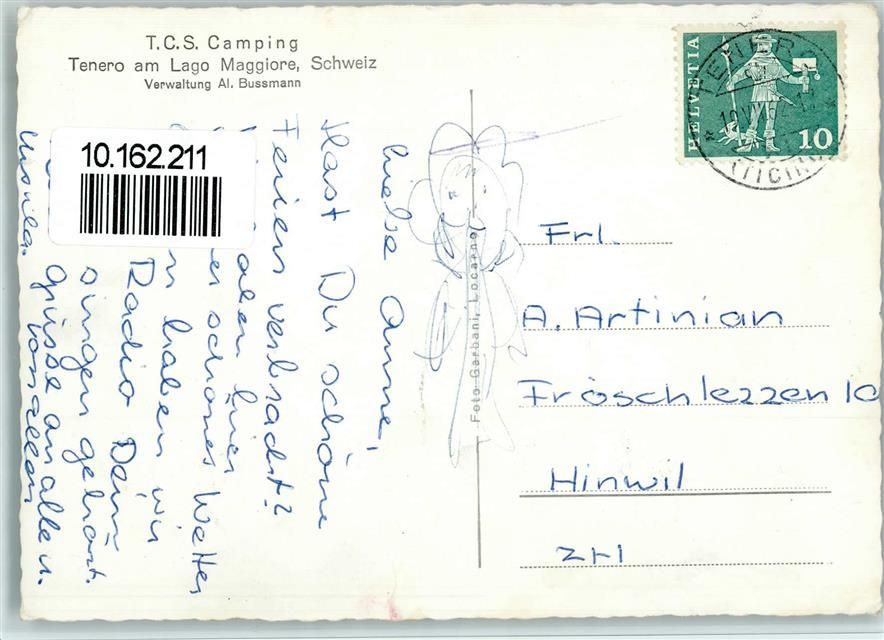 T.C.S. Camping
Tenero am Lago Maggiore, Schweiz
Verwaltung Al. Bussmann
10.162.211
HELVETIA
10
TENERO
(TICINO)
Foto Garbani, Locarno
liebe Anne,
Hast Du schöne
Ferien verbracht?
aben hier
er schönes Wetter
n haben wir
Radio Dein
singen gehört.
grüsse an alle u.
von allen
Ursula.
Frl.
A. Artinian
Fröschlezzen 10
Hinwil
ZH